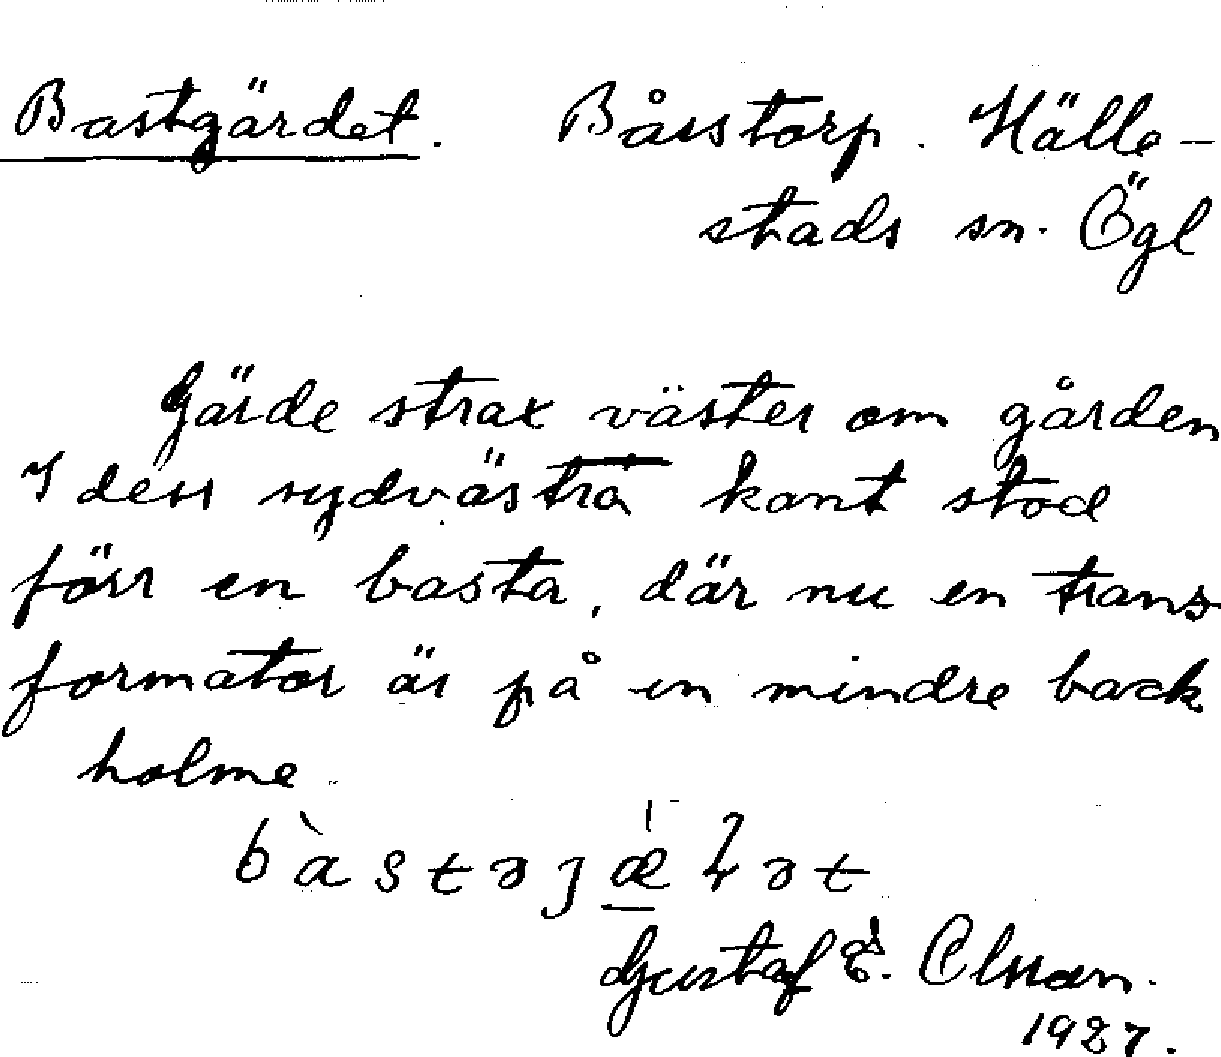 Bastgärdet. Båsstorp. Hälle-
stads sn. Ögl
Gärde strax väster om gården
I dess sydvästra kant stod
förr en basta, där nu en trans
formator är på en mindre back
holme.
Gustaf E. Olsson.
1927.